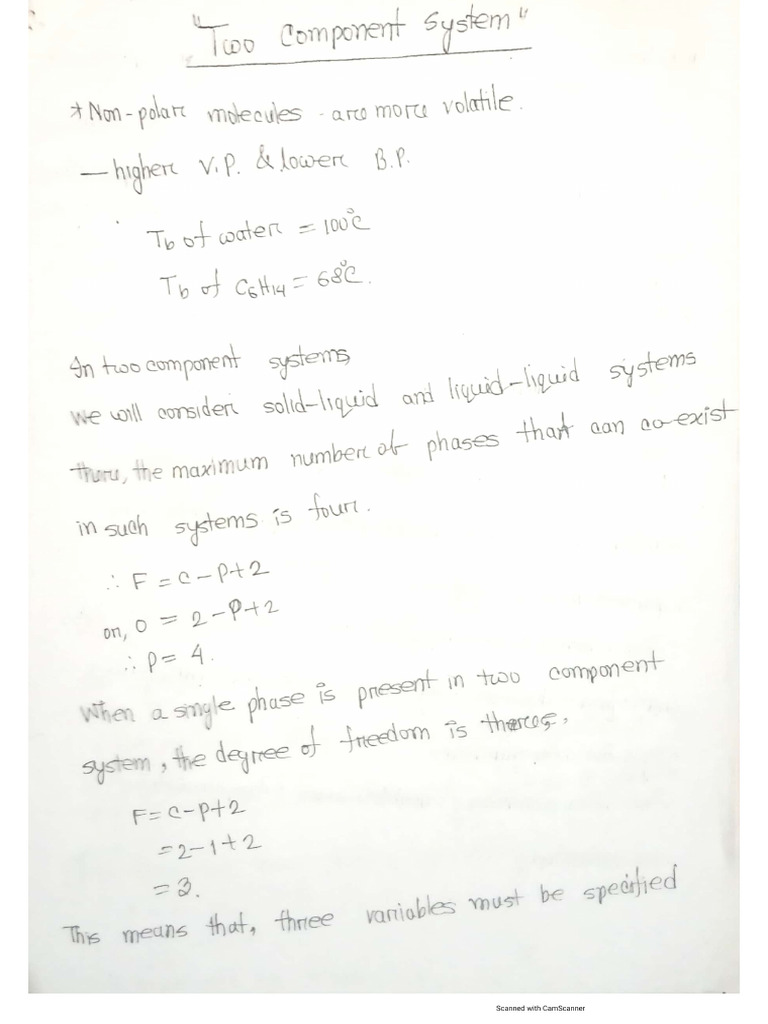 "Two Component System"
* Non-polar molecules are more volatile.
— higher V.P. & lower B.P.
Tb of water = 100°C
Tb of C6H14 = 68°C.
In two component systems,
we will consider solid-liquid and liquid-liquid systems
thus, the maximum number of phases that can co-exist
in such systems is four.
∴ F = C-P+2
or, 0 = 2-P+2
∴ P = 4.
When a single phase is present in two component
system, the degree of freedom is three,
F = C-P+2
= 2-1+2
= 3.
This means that, three variables must be specified
Scanned with CamScanner